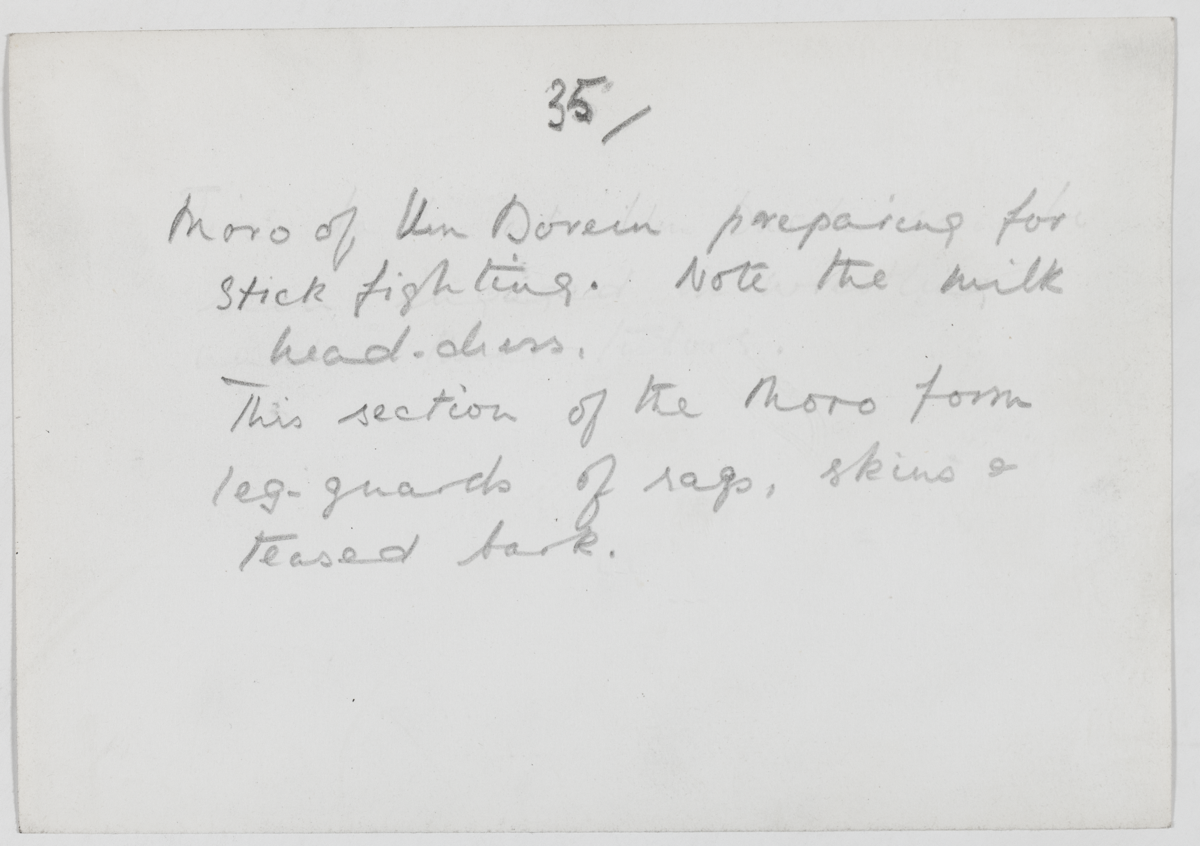 35/
Moro of Um Dorein preparing for
stick fighting. Note the milk
head-dress.
This section of the Moro form
leg-guards of rags, skins &
teased bark.